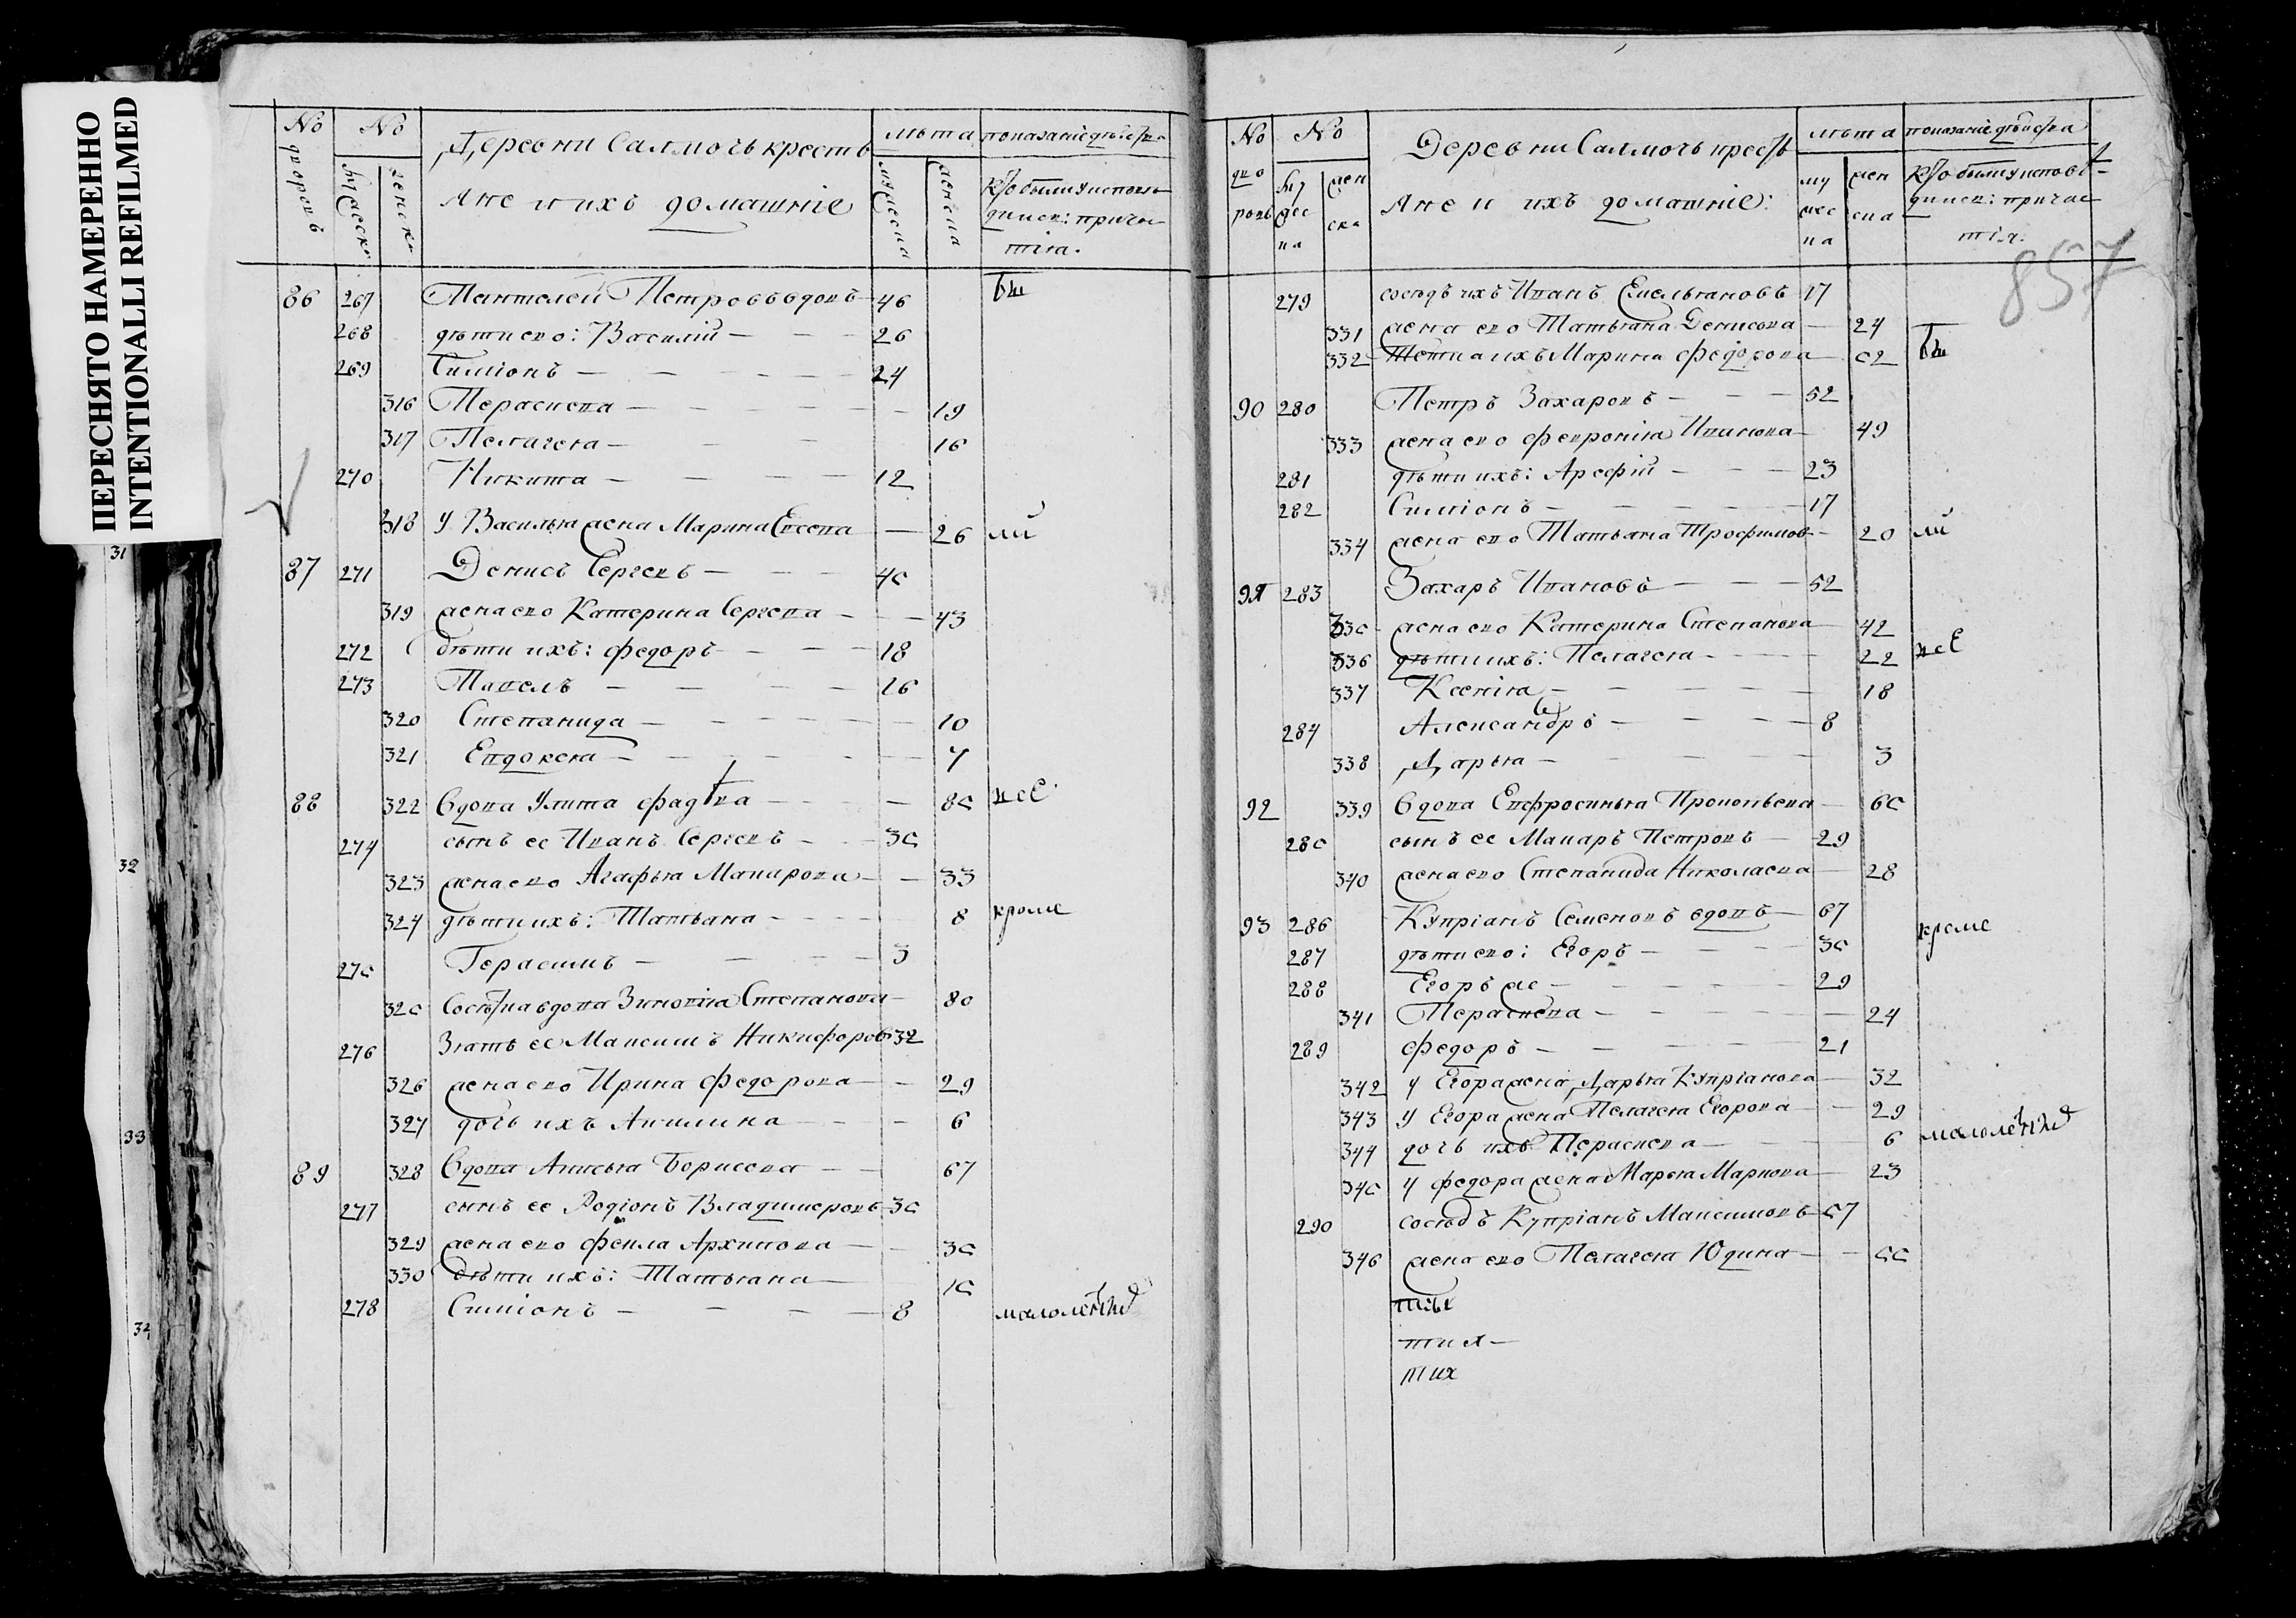 ПЕРЕСНЯТО НАМЕРЕННО
INTENTIONALLI REFILMED
31
32
33
34
No дворовъ No Деревни Салмочь крестья лѣта показаніе дѣйства
мужеска женска Ане и ихъ домашніе мужеска женска Кто были у исповѣди и с: прича
стія.
86 267 Пантелей Петровъ вдовъ 46 Бы
268 дѣти ево: Василій — 26
269 Симіонъ — 24
316 Параскева — 19
317 Пелагея — 16
270 Никита — 12
318 у Василья жена Марина Евсева — 26 ли
87 271 Денисъ Сергевъ — 45
319 жена ево Катерина Сергева — 43
272 дѣти ихъ: Федоръ — 18
273 Павелъ — 16
320 Степанида — 10
321 Евдокея — 7
88 322 вдова Улита Фадѣва — 85 всѣ
274 сынъ ее Иванъ Сергевъ — 35
323 жена ево Агафья Макарова — 33
324 дѣти ихъ: Татьяна — 8 кроме
275 Герасимъ — 3
325 Сосѣтка вдова Зиновія Степанова — 80
276 Зять ее Максимъ Никифоровъ 32
326 жена ево Ирина Федорова — 29
327 дочь ихъ Акилина — 6
89 328 вдова Анисья Борисова — 67
277 сынъ ее Родіонъ Владимеровъ 35
329 жена ево Фекла Архипова — 35
330 дѣти ихъ: Татьяна — 15
278 Симіонъ — 8 малолетныхъ
No дворовъ No Деревни Салмочь крестья лѣта показаніе дѣйства
мужеска женска Ане и ихъ домашніе: мужеска женска Кто были у исповѣди и с: причас
тія.
857
279 сосѣдъ ихъ Иванъ Емельяновъ 17
331 жена ево Татьяна Денисова — 24
332 Тетка ихъ Марина Федорова — 52 Бы
90 280 Петръ Захаровъ — 52
333 жена ево Февронія Иванова — 49
281 дѣти ихъ: Арефій — 23
282 Симіонъ — 17
334 жена ево Татьяна Трофимов — 20 ли
91 283 Захаръ Ивановъ — 52
335 жена ево Катерина Степанова — 42
336 дѣти ихъ: Пелагея — 22 всѣ
337 Ксенія — 18
284 Александръ — 8
338 Дарья — 3
92 339 вдова Евфросинья Прокопьева — 65
285 сынъ ее Макаръ Петровъ — 29
340 жена ево Степанида Николаева — 28
93 286 Купріанъ Семеновъ вдовъ — 67 кроме
287 дѣти ево: Егоръ — 35
288 Егоръ же — 29
341 Параскева — 24
289 Федоръ — 21
342 у Егора жена Дарья Купріанова — 32
343 у Егора жена Пелагея Егорова — 29
344 дочь ихъ Параскева — 6 малолетныхъ
345 у Федора жена Марья Маркова — 23
290 сосѣдъ Купріанъ Максимовъ 57
346 жена ево Пелагея Юдина — 55
тих —
тих